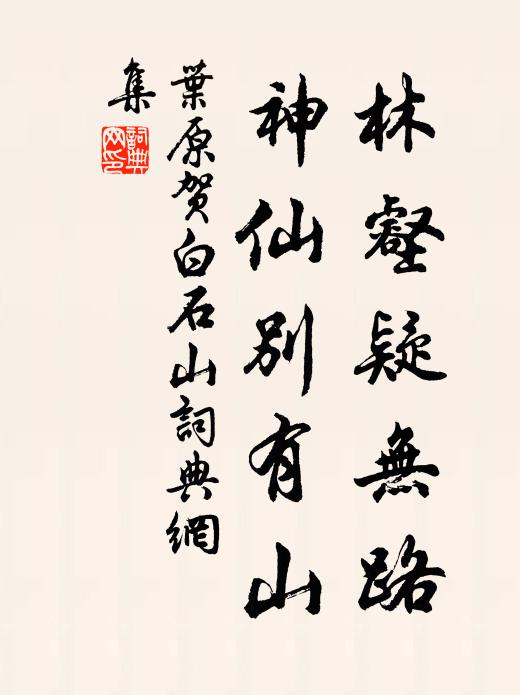 林壑疑無路
神仙別有山
葉原賀白石山詞典網
集
詞典網印